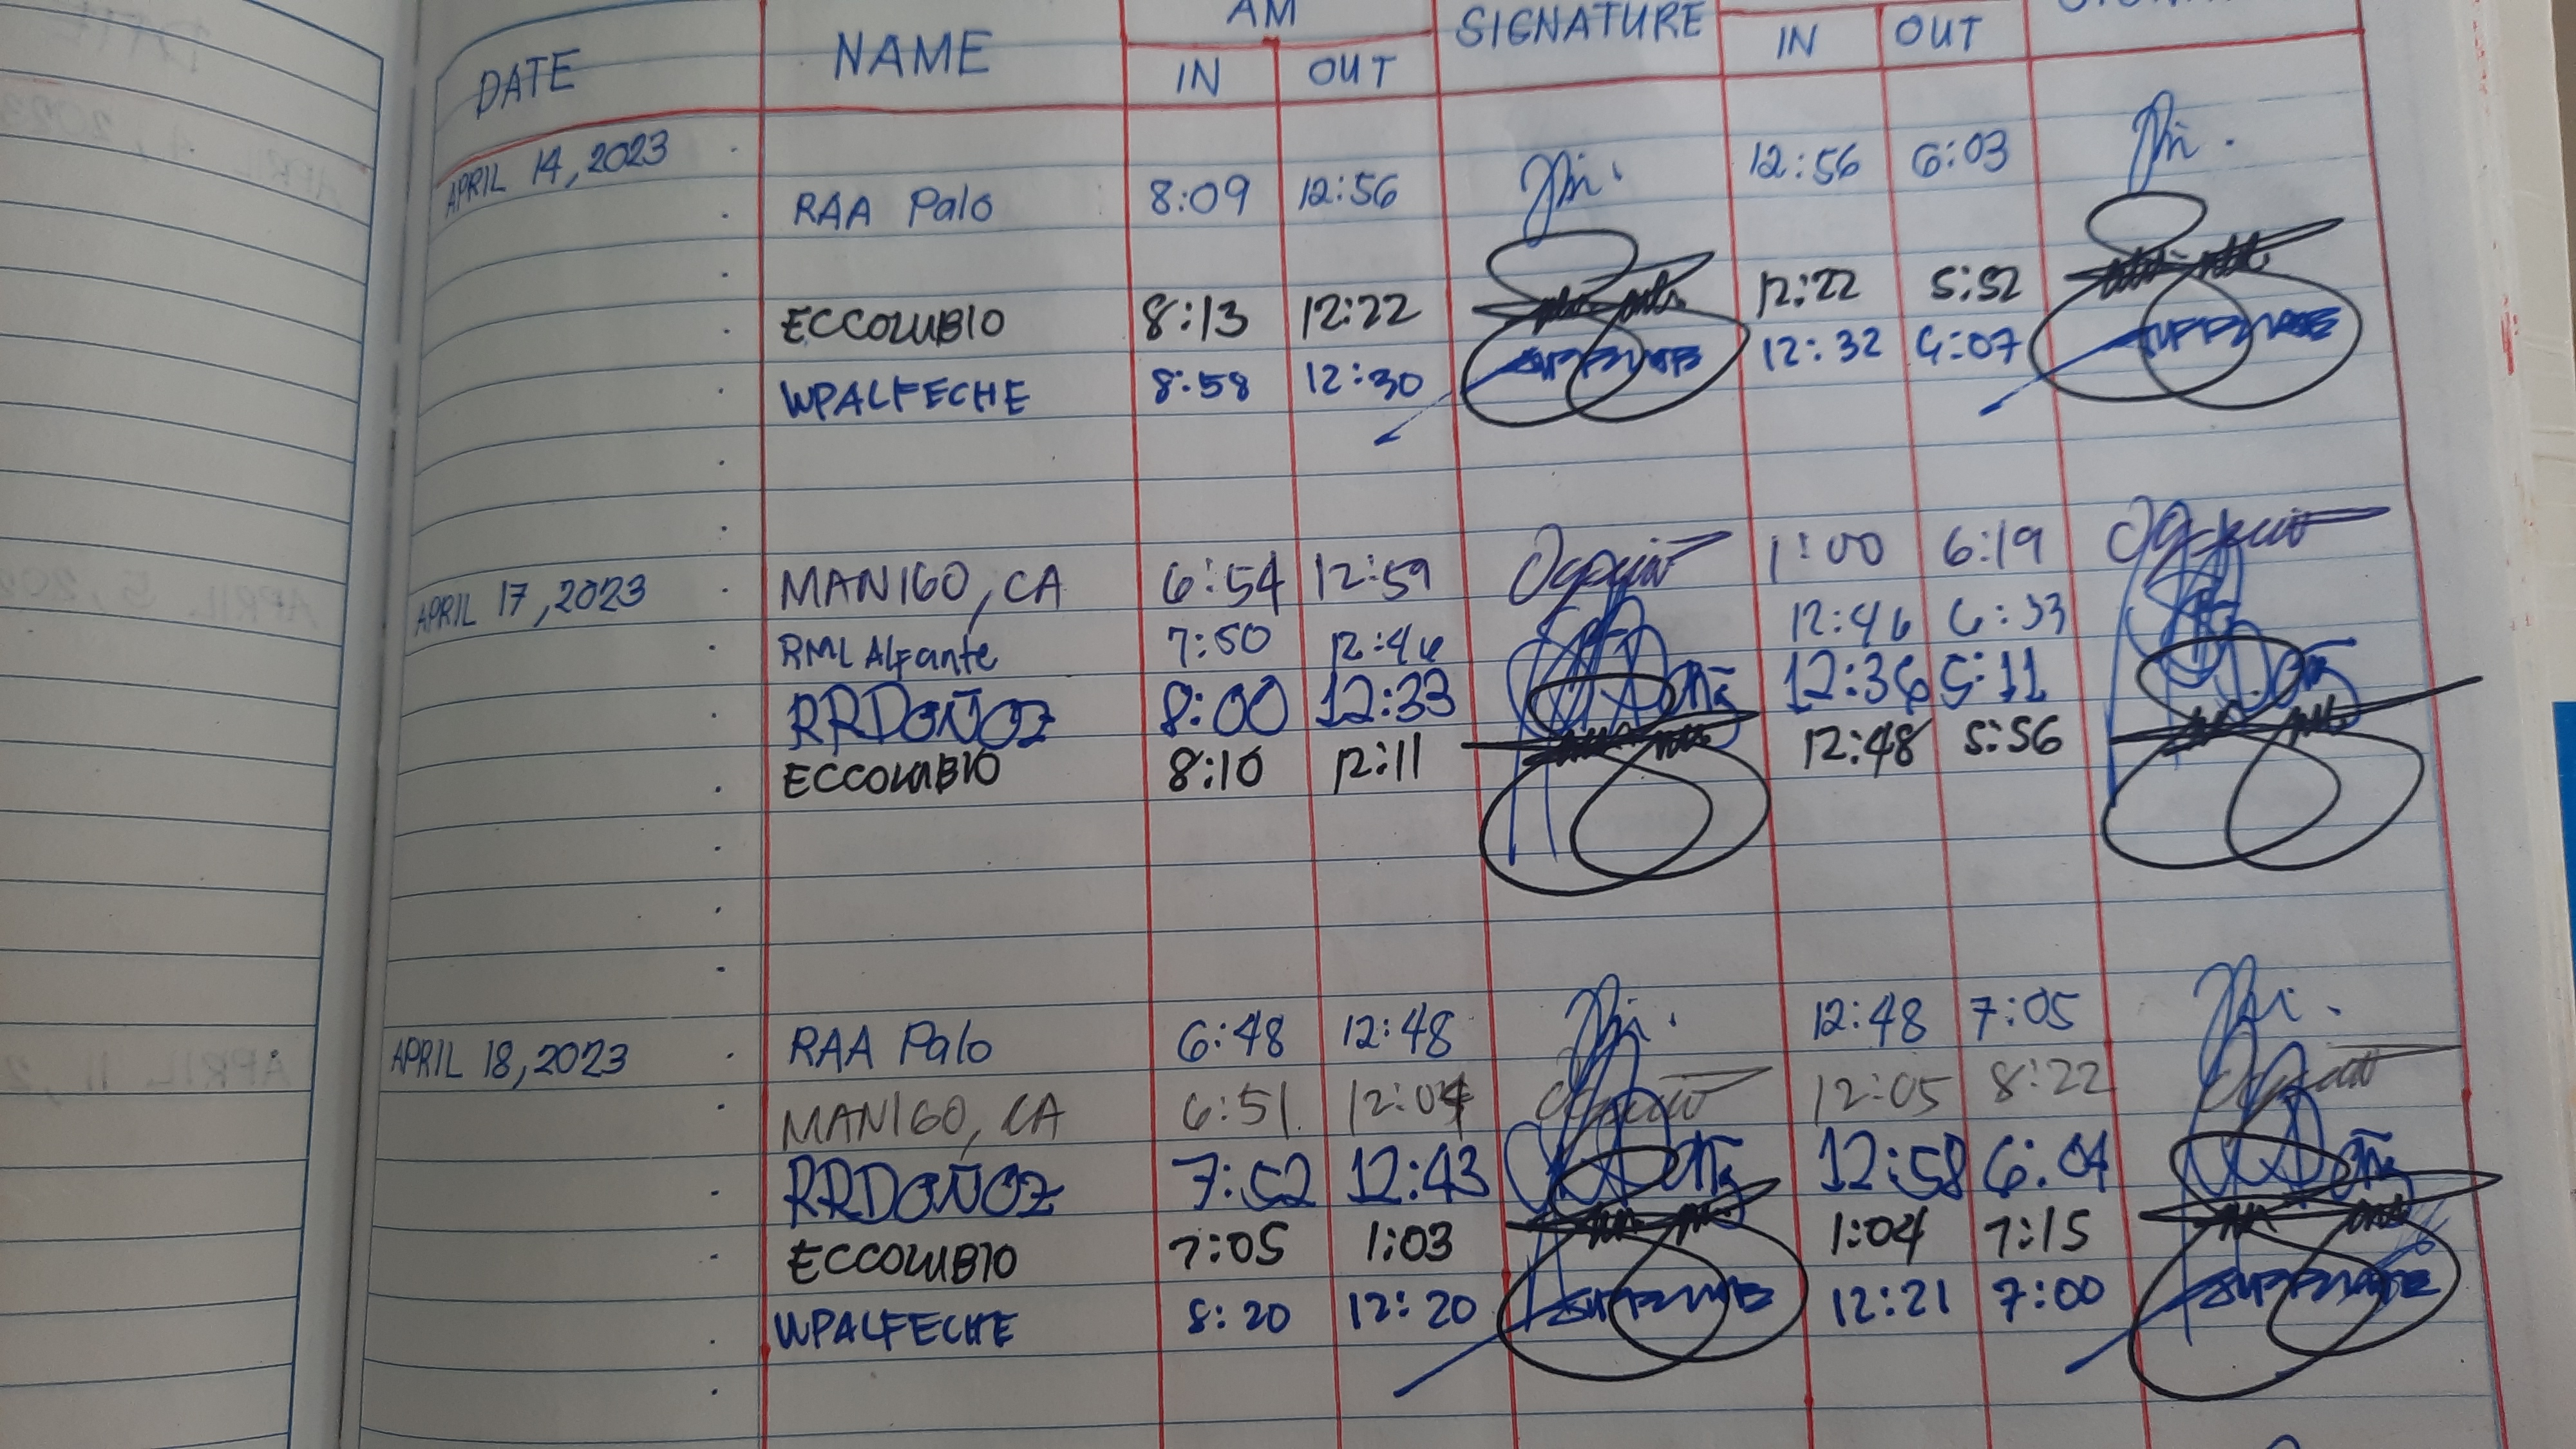 AM
DATE NAME IN OUT SIGNATURE IN OUT
APRIL 14, 2023
RAA Palo 8:09 12:56 12:56 6:03
ECCOLUBIO 8:13 12:22 12:22 5:52
WPALFECHE 8:58 12:30 12:32 6:07
APRIL 17, 2023 MANIGO, CA 6:54 12:59 1:00 6:19
RML Alfante 7:50 12:46 12:46 6:33
RRDOÑOZ 8:00 12:33 12:36 5:11
ECCOLUBIO 8:10 12:11 12:48 5:56
APRIL 18, 2023 RAA Palo 6:48 12:48 12:48 7:05
MANIGO, CA 6:51 12:04 12:05 8:22
RRDOÑOZ 7:52 12:43 12:58 6:04
ECCOLUBIO 7:05 1:03 1:04 7:15
WPALFECHE 8:20 12:20 12:21 7:00